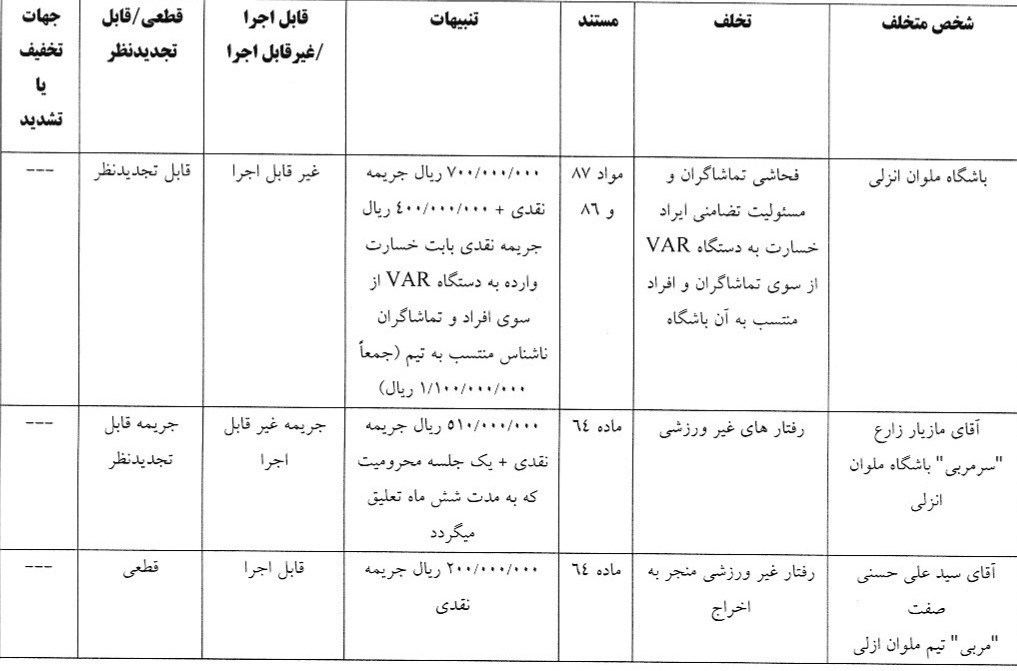 شخص متخلف
تخلف
مستند
تنبیهات
قابل اجرا
/غیرقابل اجرا
قطعی/قابل
تجدیدنظر
جهات
تخفیف
یا
تشدید
باشگاه ملوان انزلی
فحاشی تماشاگران و
مسئولیت تضامنی ایراد
خسارت به دستگاه VAR
از سوی تماشاگران و افراد
منتسب به آن باشگاه
مواد ۸۷
و ۸۶
۷۰۰/۰۰۰/۰۰۰ ریال جریمه
نقدی + ۴۰۰/۰۰۰/۰۰۰ ریال
جریمه نقدی بابت خسارت
وارده به دستگاه VAR از
سوی افراد و تماشاگران
ناشناس منتسب به تیم (جمعاً
۱/۱۰۰/۰۰۰/۰۰۰ ریال)
غیر قابل اجرا
قابل تجدیدنظر
---
آقای مازیار زارع
"سرمربی" باشگاه ملوان
انزلی
رفتار های غیر ورزشی
ماده ۶۴
۵۱۰/۰۰۰/۰۰۰ ریال جریمه
نقدی + یک جلسه محرومیت
که به مدت شش ماه تعلیق
میگردد
جریمه غیر قابل
اجرا
جریمه قابل
تجدیدنظر
---
آقای سید علی حسنی
صفت
"مربی" تیم ملوان ازلی
رفتار غیر ورزشی منجر به
اخراج
ماده ۶۴
۲۰۰/۰۰۰/۰۰۰ ریال جریمه
نقدی
قابل اجرا
قطعی
---